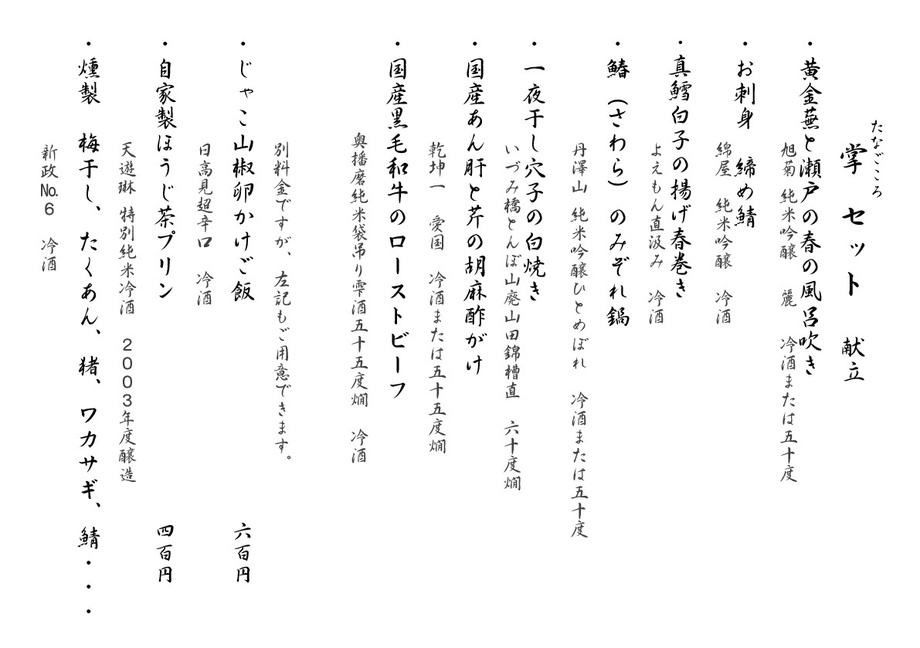 たなごころ
掌 セット 献立
・黄金蕪と瀬戸の春の風呂吹き
旭菊 純米吟醸 麗 冷酒または五十度
・お刺身 締め鯖
綿屋 純米吟醸 冷酒
・真鱈白子の揚げ春巻き
よえもん直汲み 冷酒
・鰆(さわら)のみぞれ鍋
丹澤山 純米吟醸ひとめぼれ 冷酒または五十度
・一夜干し穴子の白焼き
いづみ橋とんぼ山廃山田錦槽直 六十度燗
・国産あん肝と芹の胡麻酢がけ
乾坤一 愛国 冷酒または五十五度燗
・国産黒毛和牛のローストビーフ
奥播磨純米袋吊り雫酒五十五度燗 冷酒
別料金ですが、左記もご用意できます。
・じゃこ山椒卵かけご飯 六百円
日高見超辛口 冷酒
・自家製ほうじ茶プリン 四百円
天遊琳 特別純米冷酒 2003年度醸造
・燻製 梅干し、たくあん、猪、ワカサギ、鯖・・・
新政No.6 冷酒